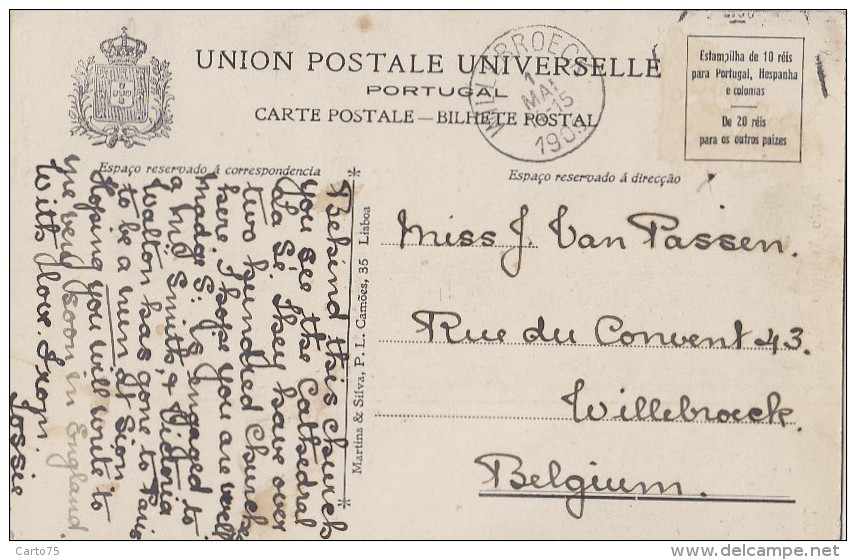 UNION POSTALE UNIVERSELLE
PORTUGAL
CARTE POSTALE—BILHETE POSTAL
Estampilha de 10 réis
para Portugal, Hespanha
e colonias
De 20 réis
para os outros paizes
1
MAI
15
190
Espaço reservado á correspondencia
Espaço reservado á direcção
Behind this church
you see the Cathedral
La Sé. They have over
two hundred Churches
here. I hope you are well
Madge S. is engaged to
a Mr Smith, & Victoria
Walton has gone to Paris
to be a nun at Sion
Hoping you will write to
me very soon in England.
With love. From
Jossie
Martins & Silva, P. L. Camões, 35 Lisboa
Miss J. Van Passen.
Rue du Convent 43.
Willebroeck.
Belgium.
Carto75
delcampe.net